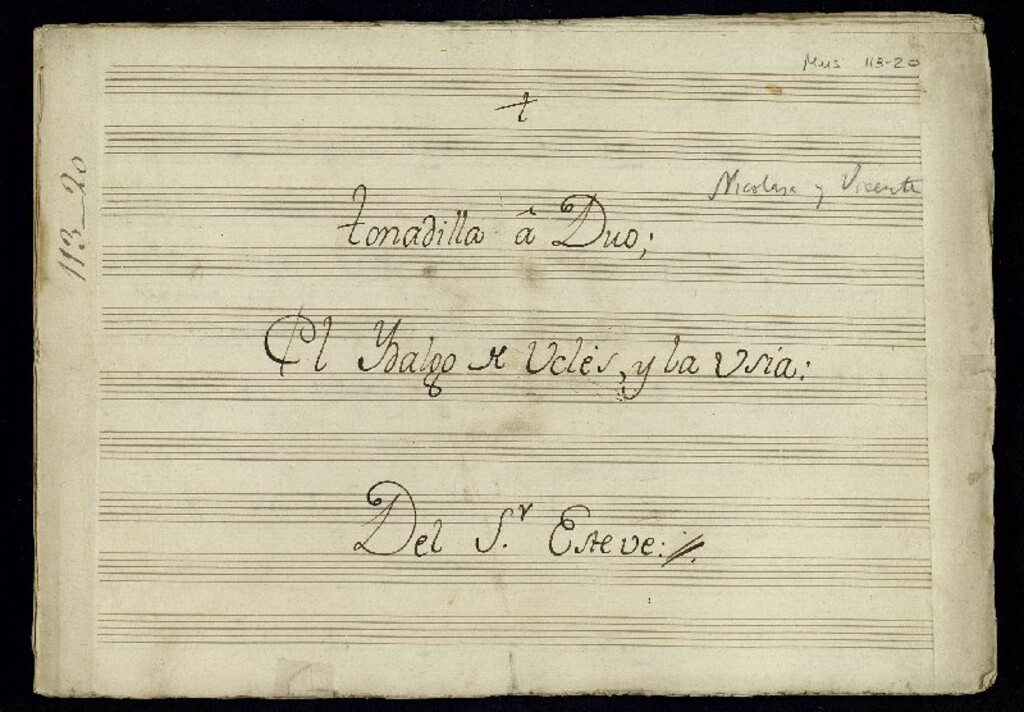 Mus 113-20
t
113-20
Nicolasa y Vicente
tonadilla â Duo;
El Ydalgo de Uclés, y la Usia:
Del S.r Esteve: